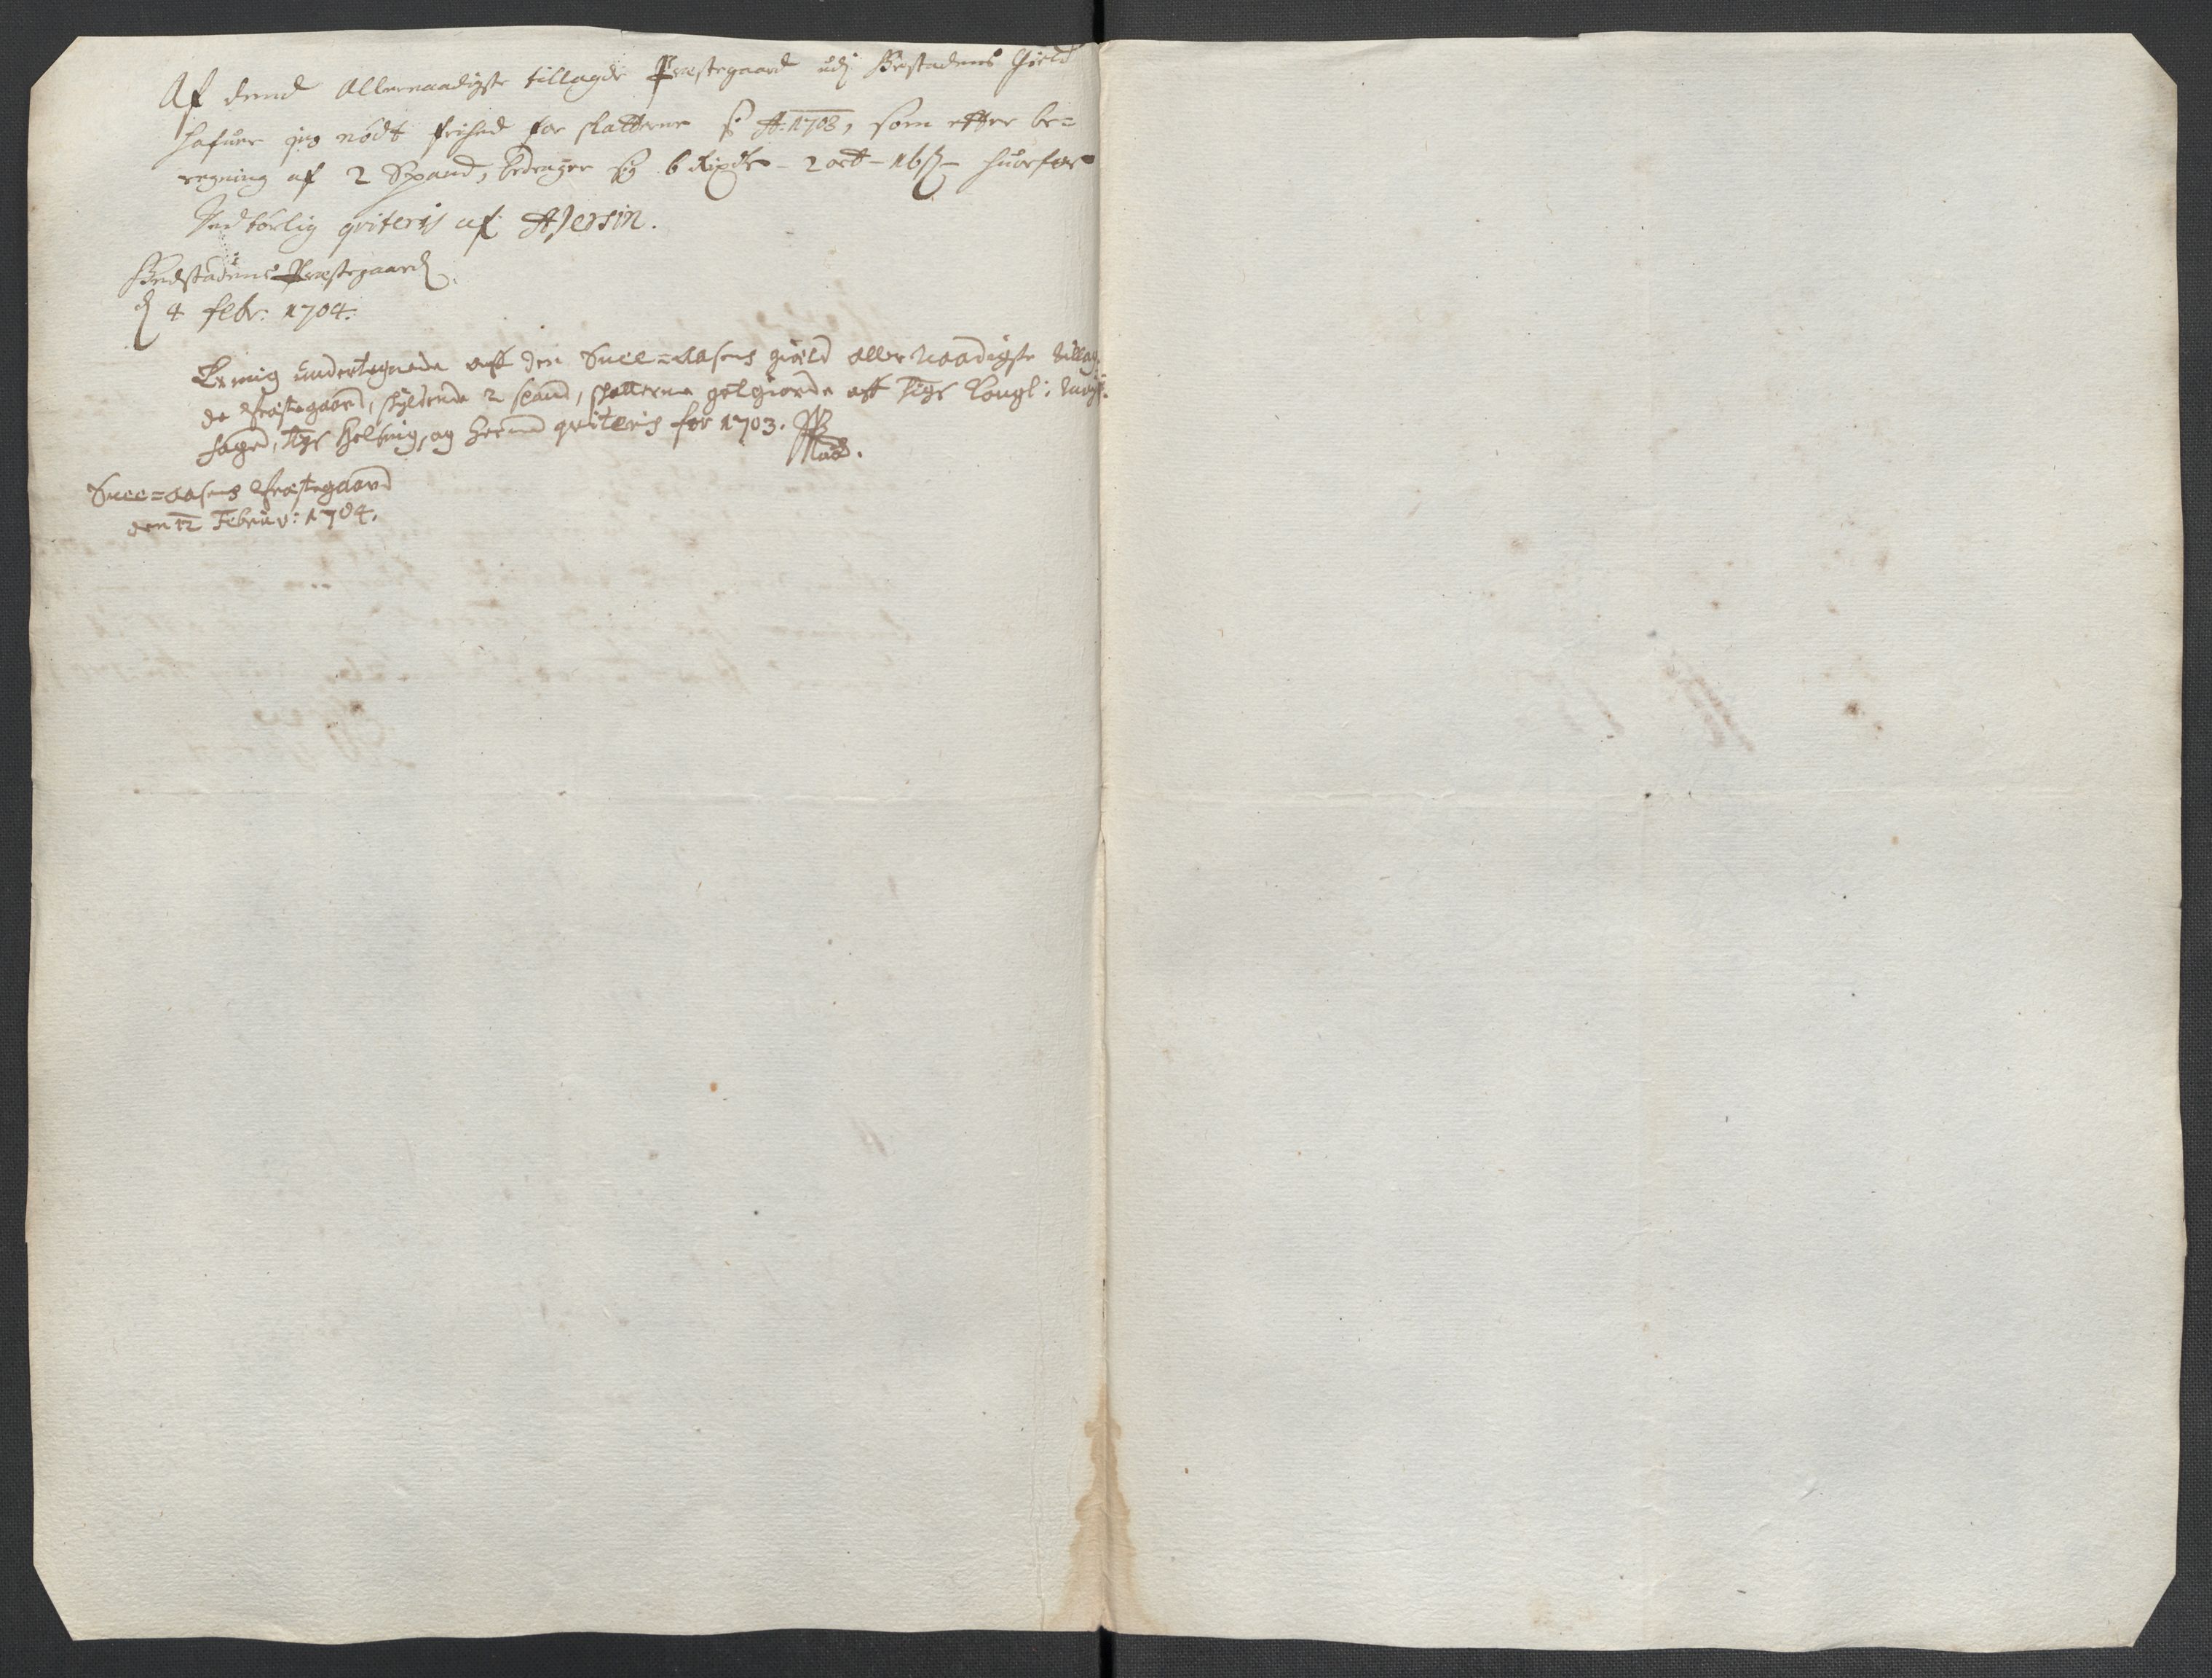 Af dend Allernaadigste tillagde Præstegaard udj Bestadens Gield
hafuer jeg nödt frihed for skatterne p A: 1703, som efter be=
regning af 2 Spand, bedrager sig 6 Rixdr - 2 ort - 16 ß - huorfor
Tienstl qviteris af AJersin.
Bedstadens Præstegaard
d 4 febr: 1704.
Er mig undertegnede aff den Snee=aasens gield aller naadigste tillag:
de Præstegaard, skyldende 2 spand, skatterne gotgiorde aff Kongl: May:
foged, og hermed qviteris for 1703.
Snee=aasens Præstegaard
den 12 Februar: 1704.